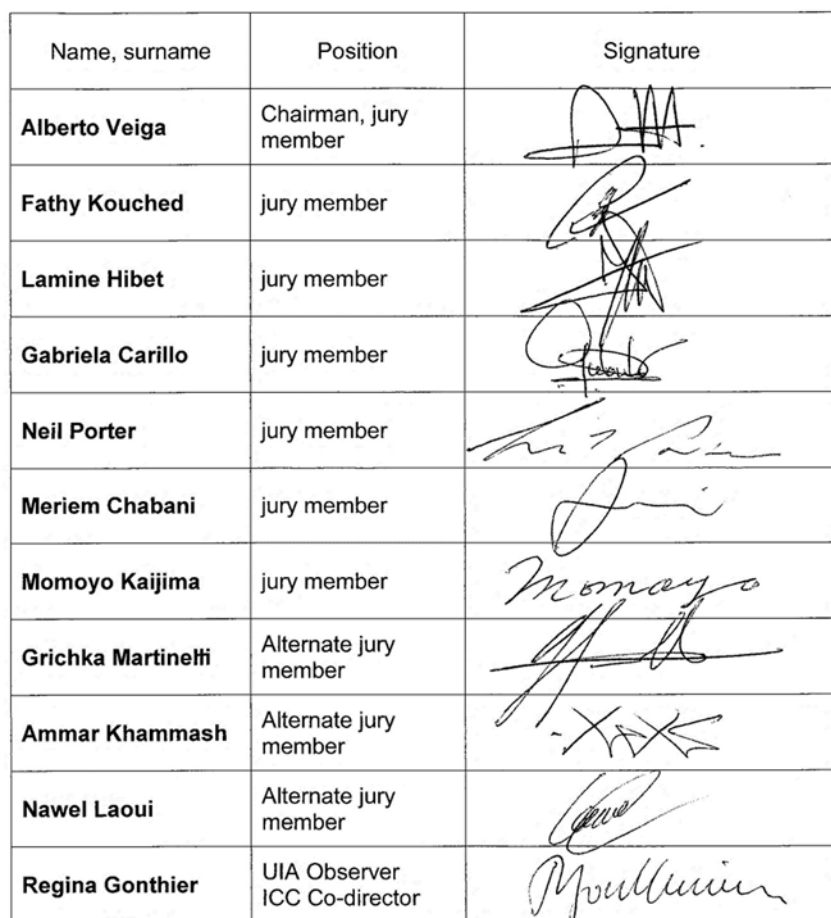 Name, surname Position Signature
Alberto Veiga Chairman, jury member
Fathy Kouched jury member
Lamine Hibet jury member
Gabriela Carillo jury member
Neil Porter jury member
Meriem Chabani jury member
Momoyo Kaijima jury member Momoyo
Grichka Martinetti Alternate jury member
Ammar Khammash Alternate jury member
Nawel Laoui Alternate jury member
Regina Gonthier UIA Observer ICC Co-director